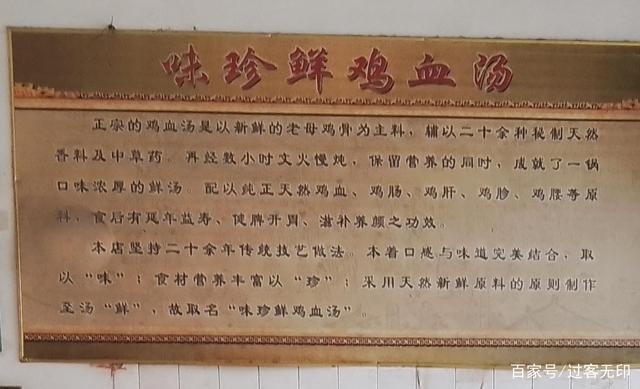 味珍鲜鸡血汤
正宗的鸡血汤是以新鲜的老母鸡骨为主料，辅以二十余种秘制天然
香料及中草药。再经数小时文火慢炖，保留营养的同时，成就了一锅
口味浓厚的鲜汤。配以纯正天然鸡血、鸡肠、鸡肝、鸡胗、鸡腰等原
料，食后有延年益寿、健脾开胃、滋补养颜之功效。
本店坚持二十余年传统技艺做法。本着口感与味道完美结合，取
以“味”；食材营养丰富以“珍”；采用天然新鲜原料的原则制作
至汤“鲜”，故取名“味珍鲜鸡血汤”。
百家号/过客无印